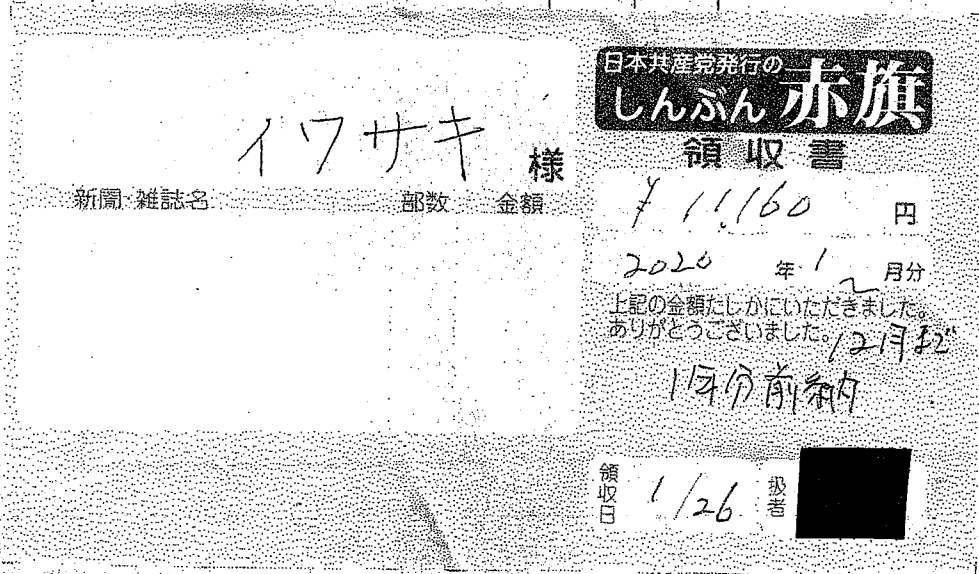 イワサキ 様
新聞・雑誌名 部数 金額
日本共産党発行の
しんぶん 赤旗
領収書
¥11,160 円
2020 年 1〜 月分
上記の金額たしかにいただきました。
ありがとうございました。
12月まで
1年分前納
領収日 1/26 扱者